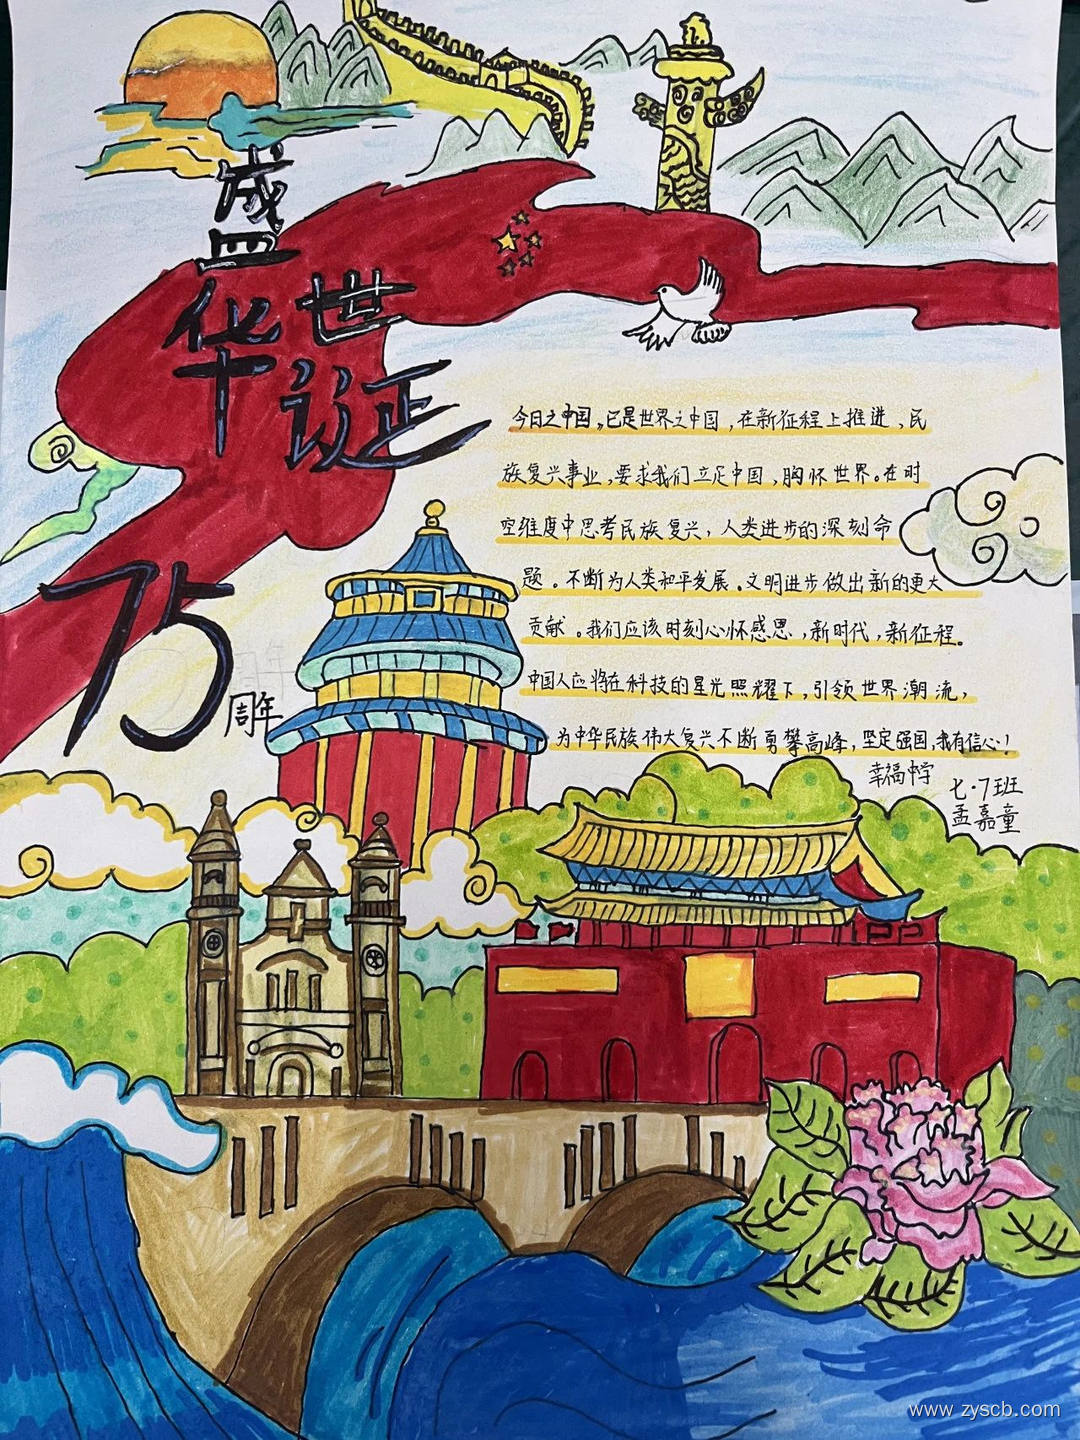 盛世
华诞
75
周年
今日之中国,已是世界之中国,在新征程上推进、民
族复兴事业,要求我们立足中国,胸怀世界。在时
空维度中思考民族复兴,人类进步的深刻命
题。不断为人类和平发展。文明进步做出新的更大
贡献。我们应该时刻心怀感恩,新时代,新征程。
中国人应将在科技的星光照耀下,引领世界潮流,
为中华民族伟大复兴不断勇攀高峰,坚定强国,我有信心!
幸福中学
七·7班
孟嘉童
www.zyscb.com